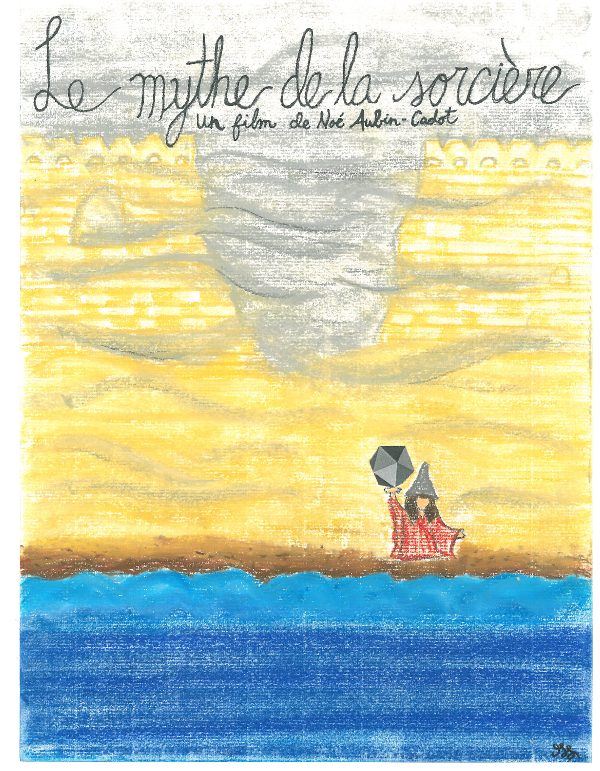 Le mythe de la sorcière
un film de Noé Aubin-Cadot